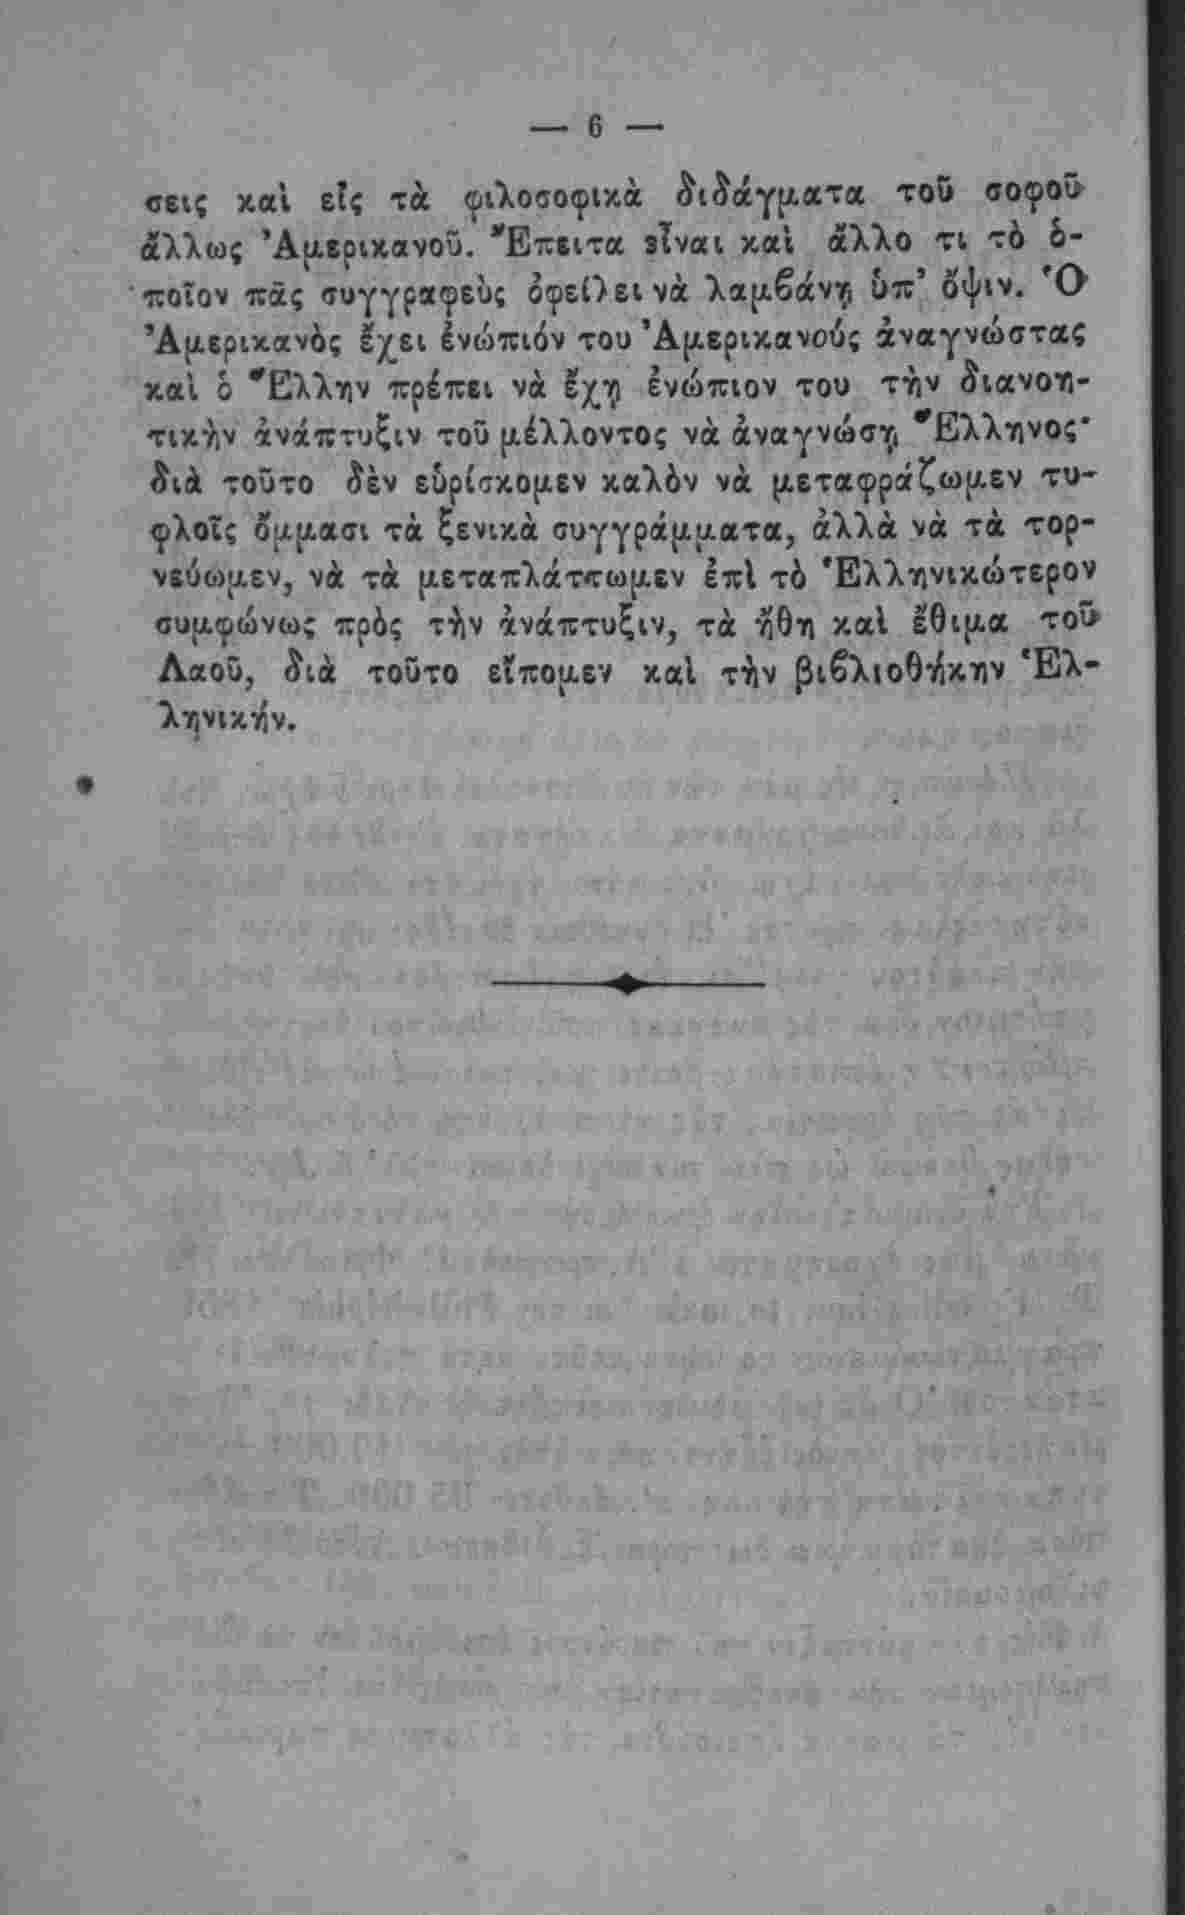 — 6 —
σεις καὶ εἰς τὰ φιλοσοφικὰ διδάγματα τοῦ σοφοῦ
ἄλλως Ἀμερικανοῦ. Ἔπειτα εἶναι καὶ ἄλλο τι τὸ ὁ-
ποῖον πᾶς συγγραφεὺς ὀφείλει νὰ λαμβάνῃ ὑπ' ὄψιν. Ὁ
Ἀμερικανὸς ἔχει ἐνώπιόν του Ἀμερικανούς ἀναγνώστας
καὶ ὁ Ἕλλην πρέπει νὰ ἔχῃ ἐνώπιον του τὴν διανοη-
τικὴν ἀνάπτυξιν τοῦ μέλλοντος νὰ ἀναγνώσῃ Ἕλληνος·
διὰ τοῦτο δὲν εὑρίσκομεν καλὸν νὰ μεταφράζωμεν τυ-
φλοῖς ὄμμασι τὰ ξενικὰ συγγράμματα, ἀλλὰ νὰ τὰ τορ-
νεύωμεν, νὰ τὰ μεταπλάττωμεν ἐπὶ τὸ Ἑλληνικώτερον
συμφώνως πρὸς τὴν ἀνάπτυξιν, τὰ ἤθη καὶ ἔθιμα τοῦ
Λαοῦ, διὰ τοῦτο εἴπομεν καὶ τὴν βιβλιοθήκην Ἑλ-
ληνικήν.